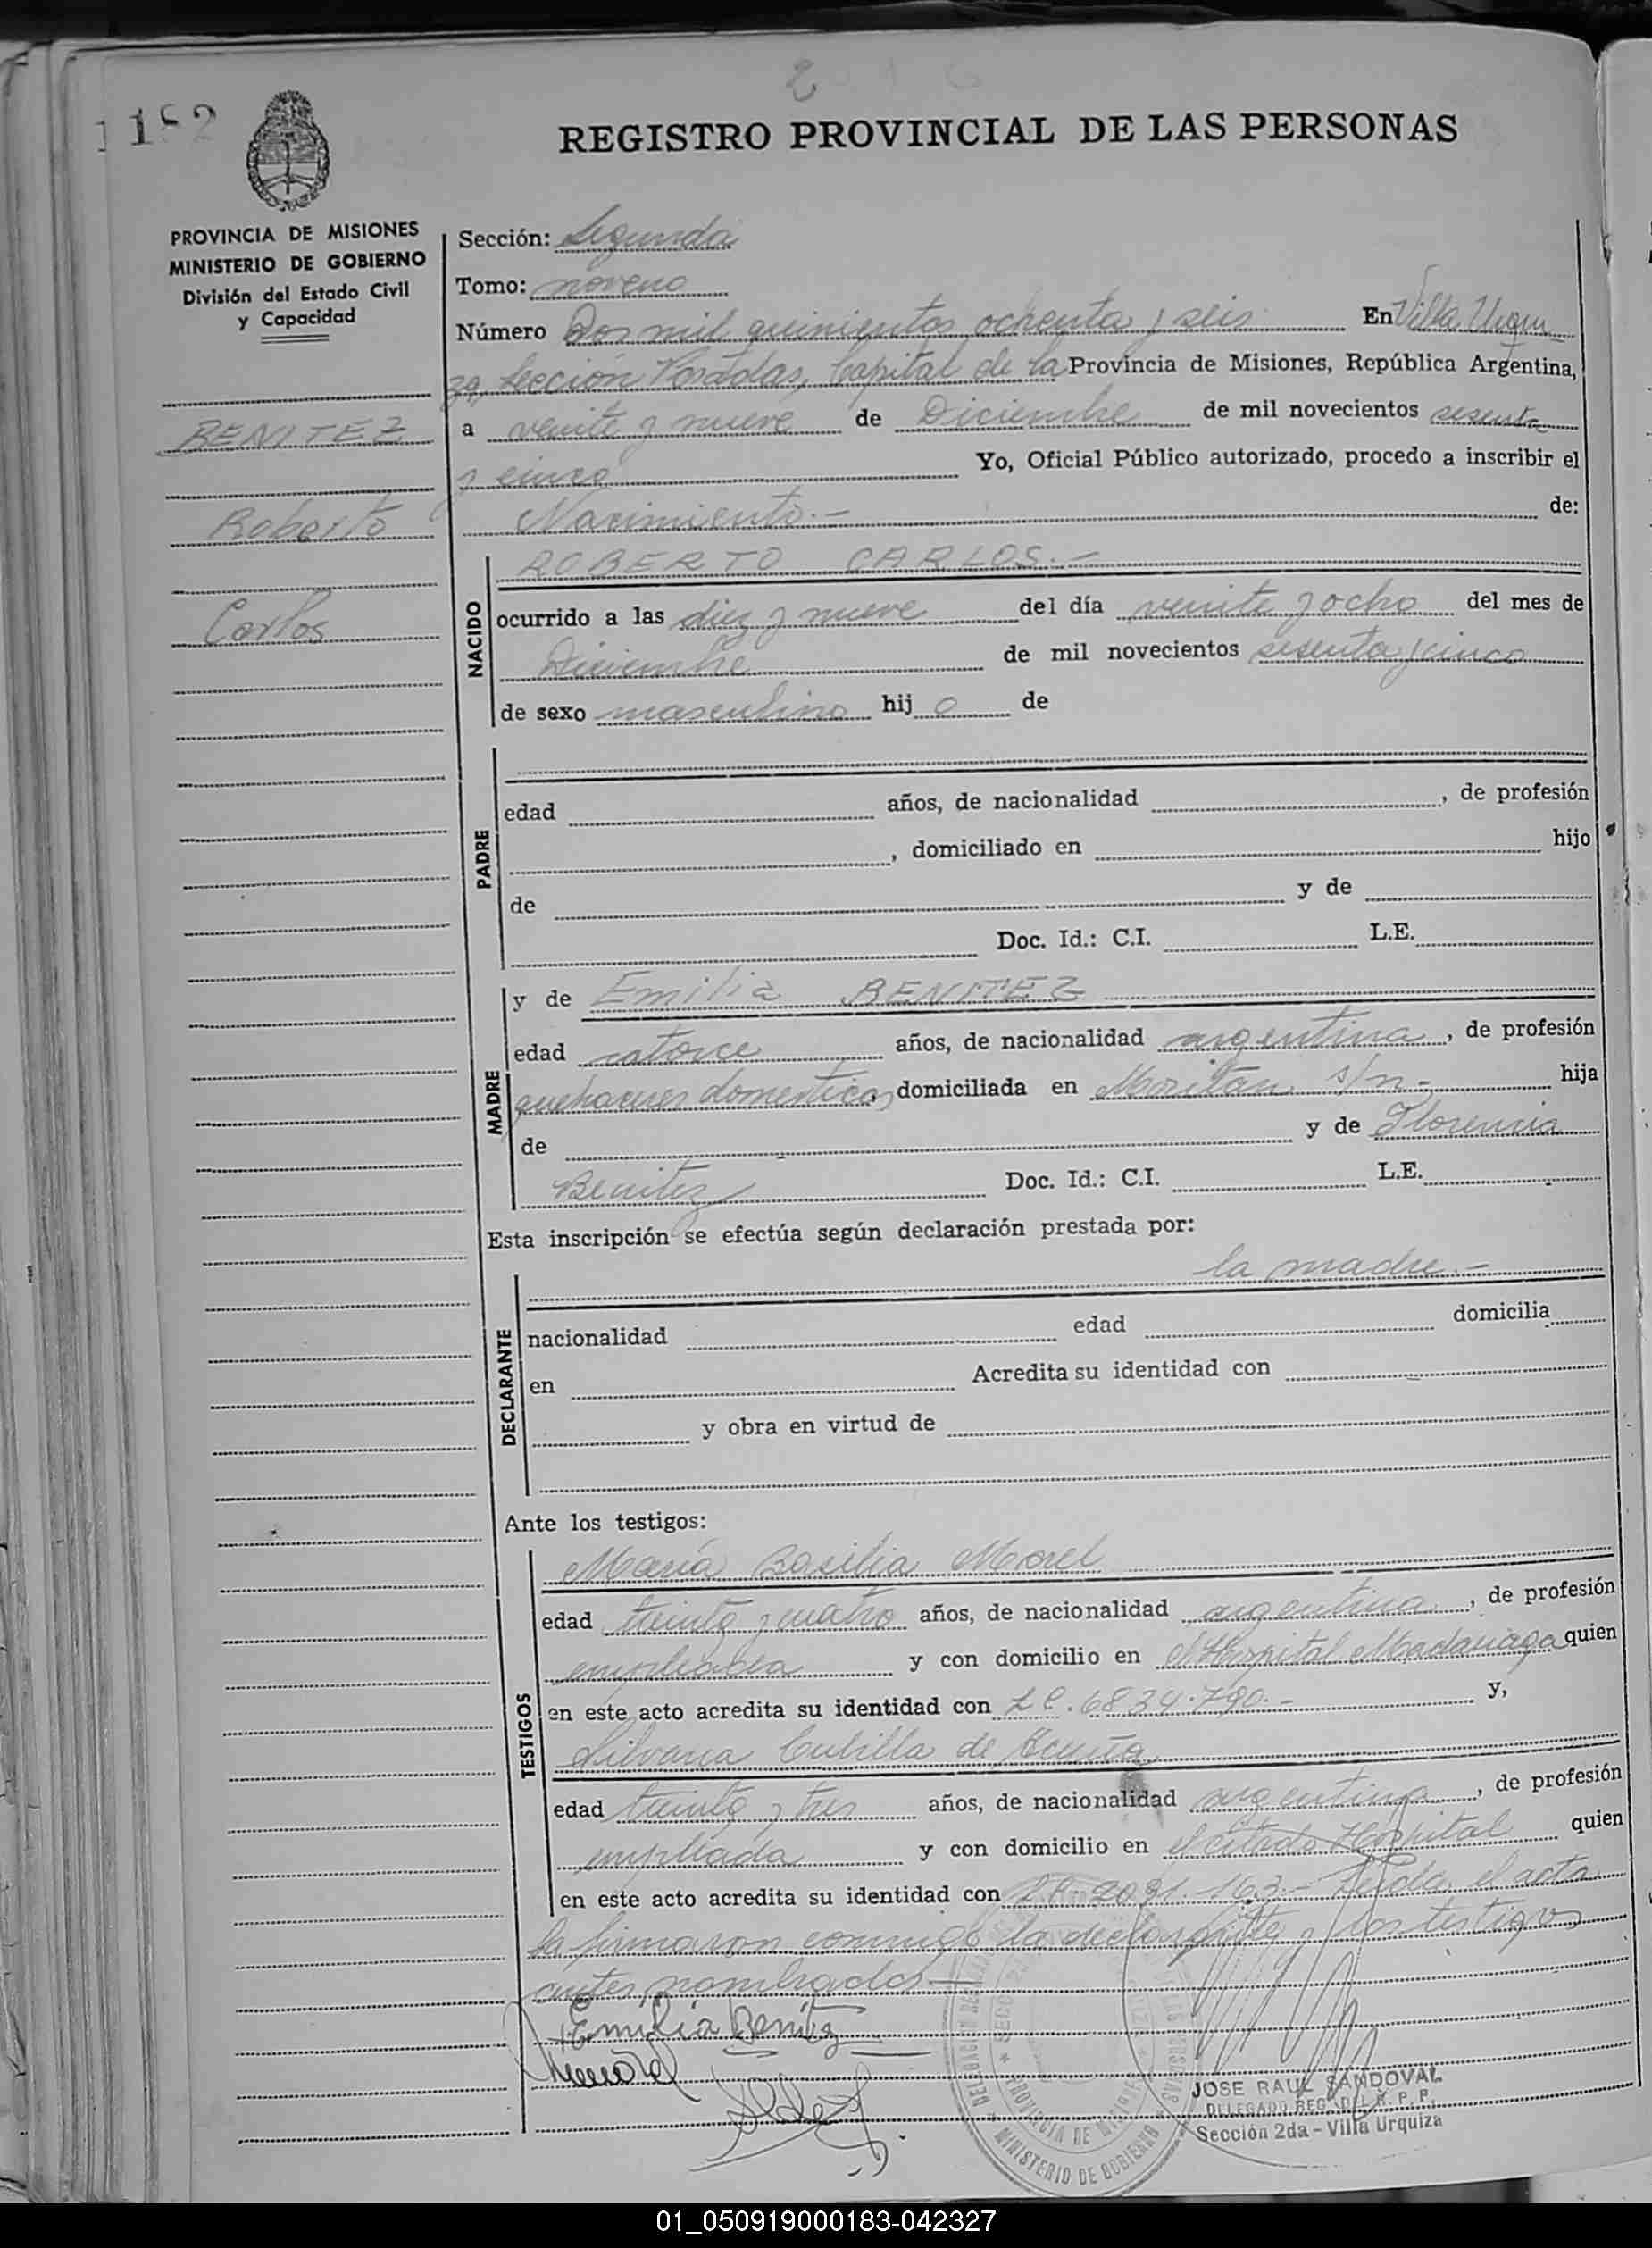 1182
REGISTRO PROVINCIAL DE LAS PERSONAS
PROVINCIA DE MISIONES
MINISTERIO DE GOBIERNO
División del Estado Civil
y Capacidad
BENITEZ
Roberto
Carlos
Sección: Segunda
Tomo: noveno
Número Dos mil quinientos ochenta y seis En Villa Urqui
za, Sección Posadas, Capital de la Provincia de Misiones, República Argentina,
a veinte y nueve de Diciembre de mil novecientos sesenta
y cinco Yo, Oficial Público autorizado, procedo a inscribir el
Nacimiento.- de:
NACIDO
ROBERTO CARLOS.-
ocurrido a las diez y nueve del día veinte y ocho del mes de
Diciembre de mil novecientos sesenta y cinco
de sexo masculino hijo de
PADRE
edad años, de nacionalidad , de profesión
, domiciliado en hijo
de y de
Doc. Id.: C.I. L.E.
MADRE
y de Emilia BENITEZ
edad catorce años, de nacionalidad argentina, de profesión
quehaceres domesticos, domiciliada en s/n- hija
de y de Florencia
Benitez Doc. Id.: C.I. L.E.
Esta inscripción se efectúa según declaración prestada por:
DECLARANTE
la madre.-
nacionalidad edad domicilia
en Acredita su identidad con
y obra en virtud de
Ante los testigos:
TESTIGOS
María Basilia Morel
edad treinta y cuatro años, de nacionalidad argentina, de profesión
empleada y con domicilio en Hospital Madariaga quien
en este acto acredita su identidad con L.C. 6834.790.- y,
Silvana de Acuña
edad treinta y tres años, de nacionalidad argentina, de profesión
empleada y con domicilio en el citado Hospital quien
en este acto acredita su identidad con 163.- Leída el acta
la firmaron conmigo la declarante y los testigos
antes nombrados.-
Emilia Benitez
JOSE RAUL SANDOVAL
DELEGADO REG. DEL R. P. P.
Sección 2da - Villa Urquiza
MINISTERIO DE GOBIERNO
PROVINCIA DE MISIONES
01_050919000183-042327